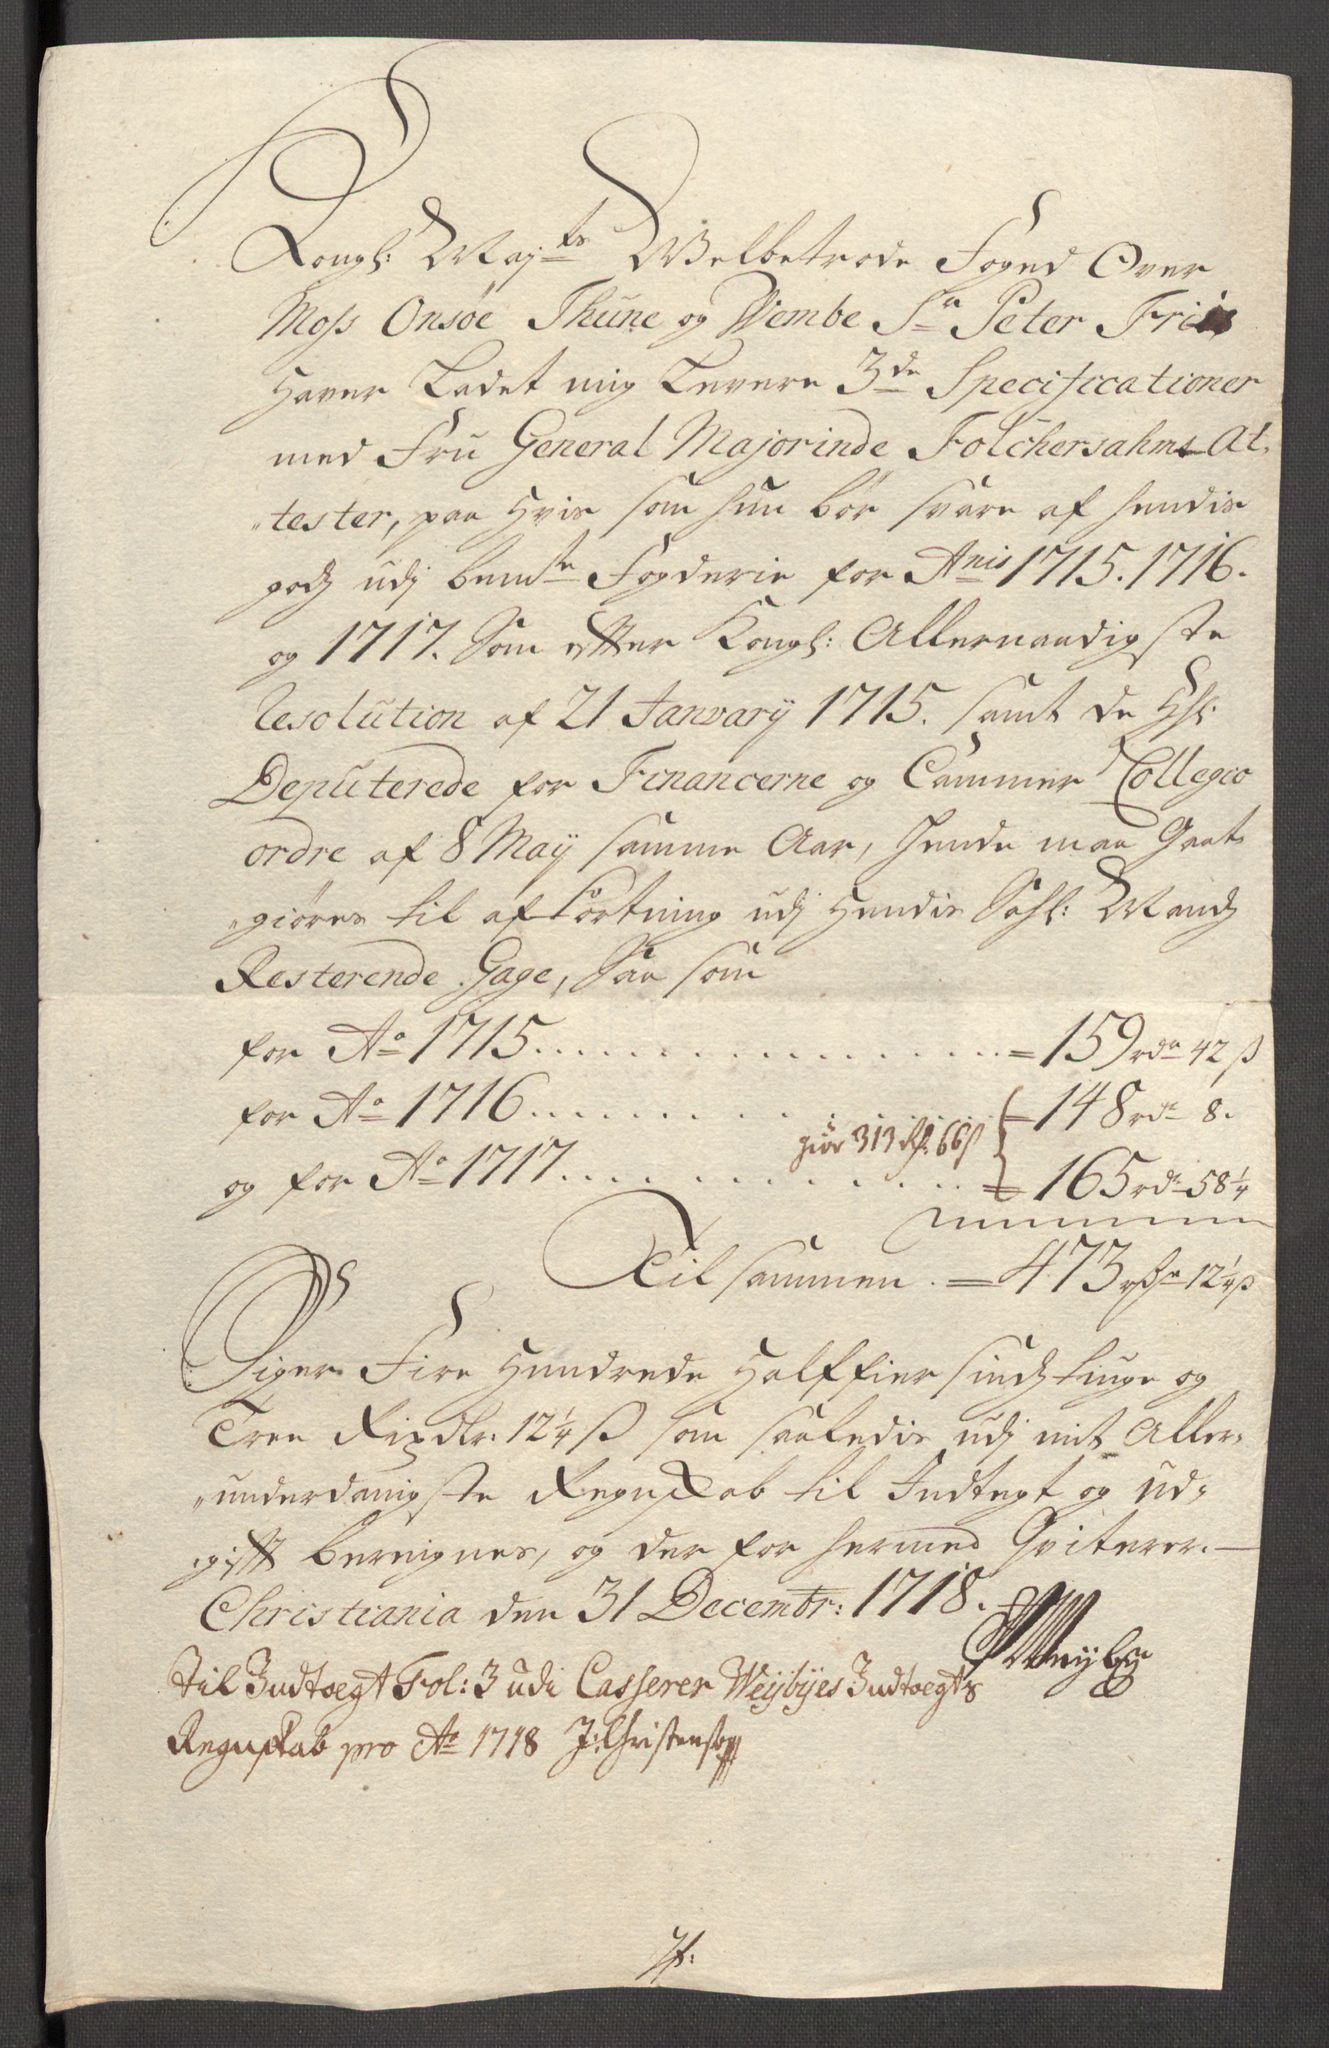 Kongl: Mayts Welbetrode Foged Over
Moss Onsöe Thune og Vembe Sr Peter Friis
Haver Ladet mig Levere 3de Specificationer
med Fru General Majorinde Folchersahms At,
„tester, paa Hvis som hun bör svare af hendis
godz udj bemte Fogderie for Anis 1715. 1716.
og 1717. Som efter Kongl: Allernaadigste
Resolution af 21 January 1715. samt de Hl:
Deputerede for Financerne og Cammer Collegio
ordre af 8 May samme Aar, hende maa Gaat„
„giöres til afkortning udj Hendis Sahl: Mandz
Resterende Gage, Saa som
for Ao 1715 . . . . . . . . . . . . . = 159 rdr 42 ß
for Ao 1716 . . . . . . . . . . . . . = 148 rdr 8.
giör 313 Rd: 66 ß
og for Ao 1717 . . . . . . . . . . . . . = 165 rdr 58 1/4
Tilsammen . = 473 rdr 12 1/4 ß
Siger Fire Hundrede Halffiersindztiuge og
Tree Rixdlr: 12 1/4 ß som saaledis udj mit Aller„
„underdanigste Regnskab til Indtegt og ud„
gift beregnes, og der for hermed Qviterer.
Christiania den 31 Decembr: 1718.
Weyby
Til Indtægt Fol: 3 udi Casserer Weybyes Indtægts
Regnskab pro Ao 1718 J: Christensen